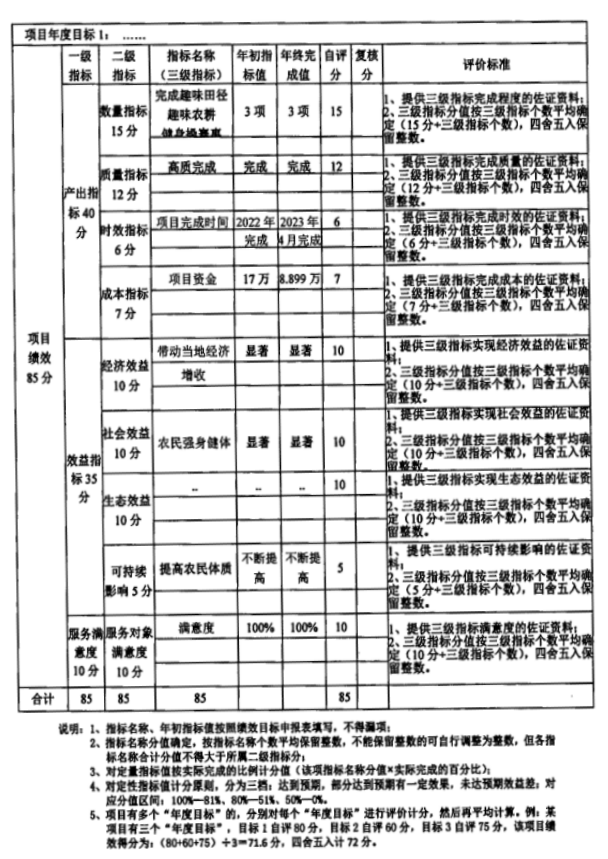 项目年度目标 1： ……
一级指标 二级指标 指标名称（三级指标） 年初指标值 年终完成值 自评分 复核分 评价标准
项目绩效 85 分
产出指标 40 分
数量指标 15 分 完成趣味田径趣味农耕 3 项 3 项 15
1、提供三级指标完成程度的佐证资料；
2、三级指标分值按三级指标个数平均确
定（15 分÷三级指标个数），四舍五入保
留整数。
质量指标 12 分 高质完成 完成 完成 12
1、提供三级指标完成质量的佐证资料；
2、三级指标分值按三级指标个数平均确
定（12 分÷三级指标个数），四舍五入保
留整数。
时效指标 6 分 项目完成时间 2022 年完成 2023 年4 月完成 6
1、提供三级指标完成时效的佐证资料；
2、三级指标分值按三级指标个数平均确
定（6 分÷三级指标个数），四舍五入保留
整数。
成本指标 7 分 项目资金 17 万 8.899 万 7
1、提供三级指标完成成本的佐证资料；
2、三级指标分值按三级指标个数平均确
定（7 分÷三级指标个数），四舍五入保留
整数。
效益指标 35 分
经济效益 10 分 带动当地经济增收 显著 显著 10
1、提供三级指标实现经济效益的佐证资
料；
2、三级指标分值按三级指标个数平均确
定（10 分÷三级指标个数），四舍五入保
留整数。
社会效益 10 分 农民强身健体 显著 显著 10
1、提供三级指标实现社会效益的佐证资
料；
2、三级指标分值按三级指标个数平均确
定（10 分÷三级指标个数），四舍五入保
留整数。
生态效益 10 分 .. .. .. 10
1、提供三级指标实现生态效益的佐证资
料；
2、三级指标分值按三级指标个数平均确
定（10 分÷三级指标个数），四舍五入保
留整数。
可持续影响 5 分 提高农民体质 不断提高 不断提高 5
1、提供三级指标可持续影响的佐证资
料；
2、三级指标分值按三级指标个数平均确
定（5 分÷三级指标个数），四舍五入保留
整数。
服务满意度 10 分 服务对象满意度 10 分 满意度 100% 100% 10
1、提供三级指标满意度的佐证资料；
2、三级指标分值按三级指标个数平均确
定（10 分÷三级指标个数），四舍五入保
留整数。
合计 85 85 85 85
说明：1、指标名称、年初指标值按照绩效目标申报表填写，不得漏项；
2、指标名称分值确定，按指标名称个数平均保留整数，不能保留整数的可自行调整为整数，但各指
标名称合计分值不得大于所属二级指标分；
3、对定量指标值按实际完成的比例计分值（该项指标名称分值×实际完成的百分比）；
4、对定性指标值计分原则，分为三档：达到预期，部分达到预期有一定效果，未达预期效益差；对
应分值区间：100%—81%、80%—51%、50%—0%。
5、项目有多个“年度目标”的，分别对每个“年度目标”进行评价计分，然后再平均计算。例：某
项目有三个“年度目标”，目标 1 自评 80 分，目标 2 自评 60 分，目标 3 自评 75 分，该项目绩
效得分为：(80+60+75) ÷3＝71.6 分，四舍五入计 72 分。